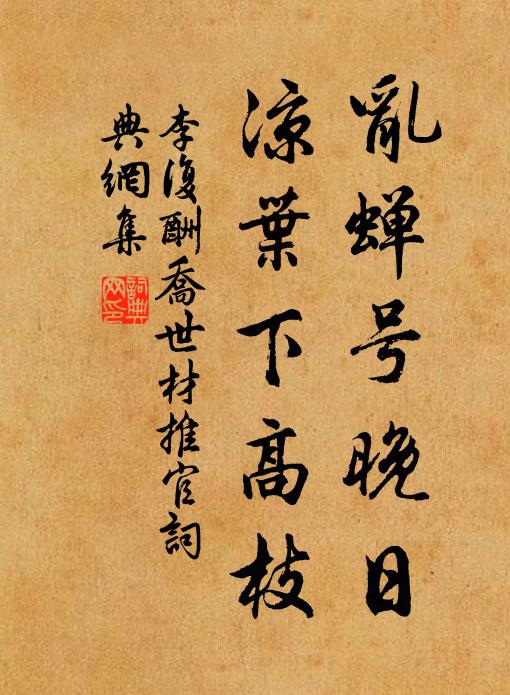 亂蝉号晚日
凉葉下高枝
李復酬喬世材推官詞
典網集
詞典
网印